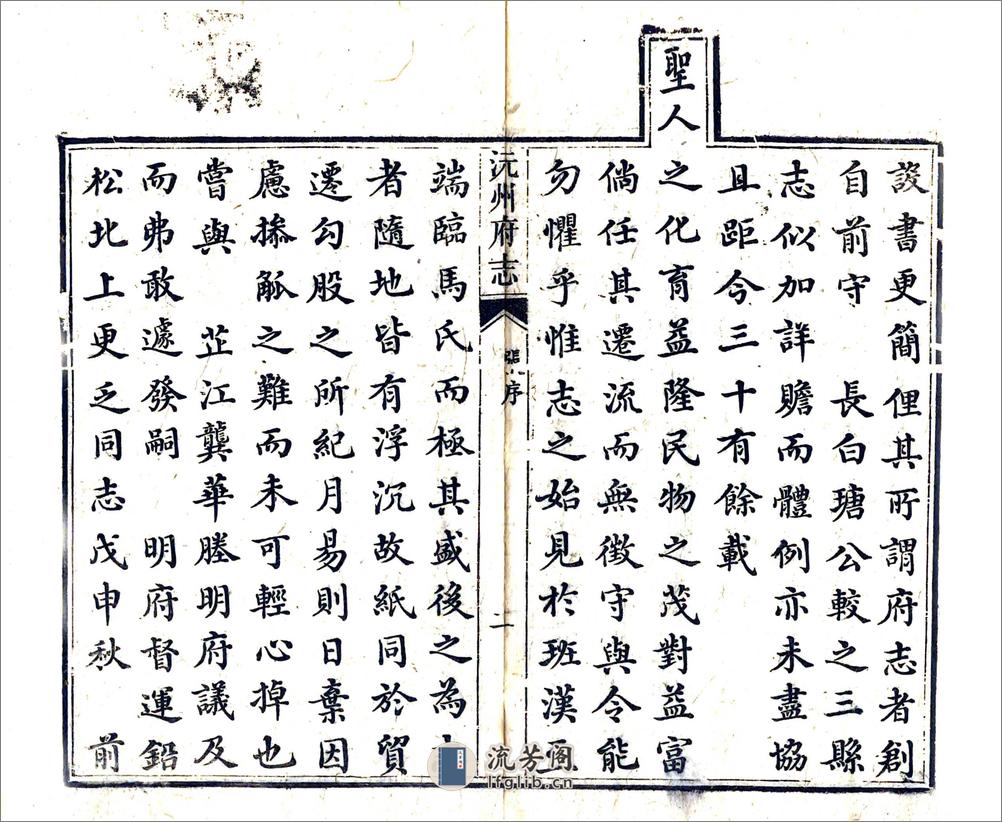 設書更簡俚其所謂府志者創
自前守　長白瑭公較之三縣
志似加詳贍而體例亦未盡協
且距今三十有餘載
聖人
之化育益隆民物之茂對益富
倘任其遷流而無徵守與令能
勿懼乎惟志之始見於班漢
沅州府志
張序
二
端臨馬氏而極其盛後之為
者隨地皆有浮沉故紙同於貿
遷勾股之所紀月易則日棄因
慮摻觚之難而未可輕心掉也
嘗與　芷江龔華塍明府議及
而弗敢遽發嗣　明府督運鉛
松北上更乏同志戊申秋　前
流芳阁
lfglib.cn